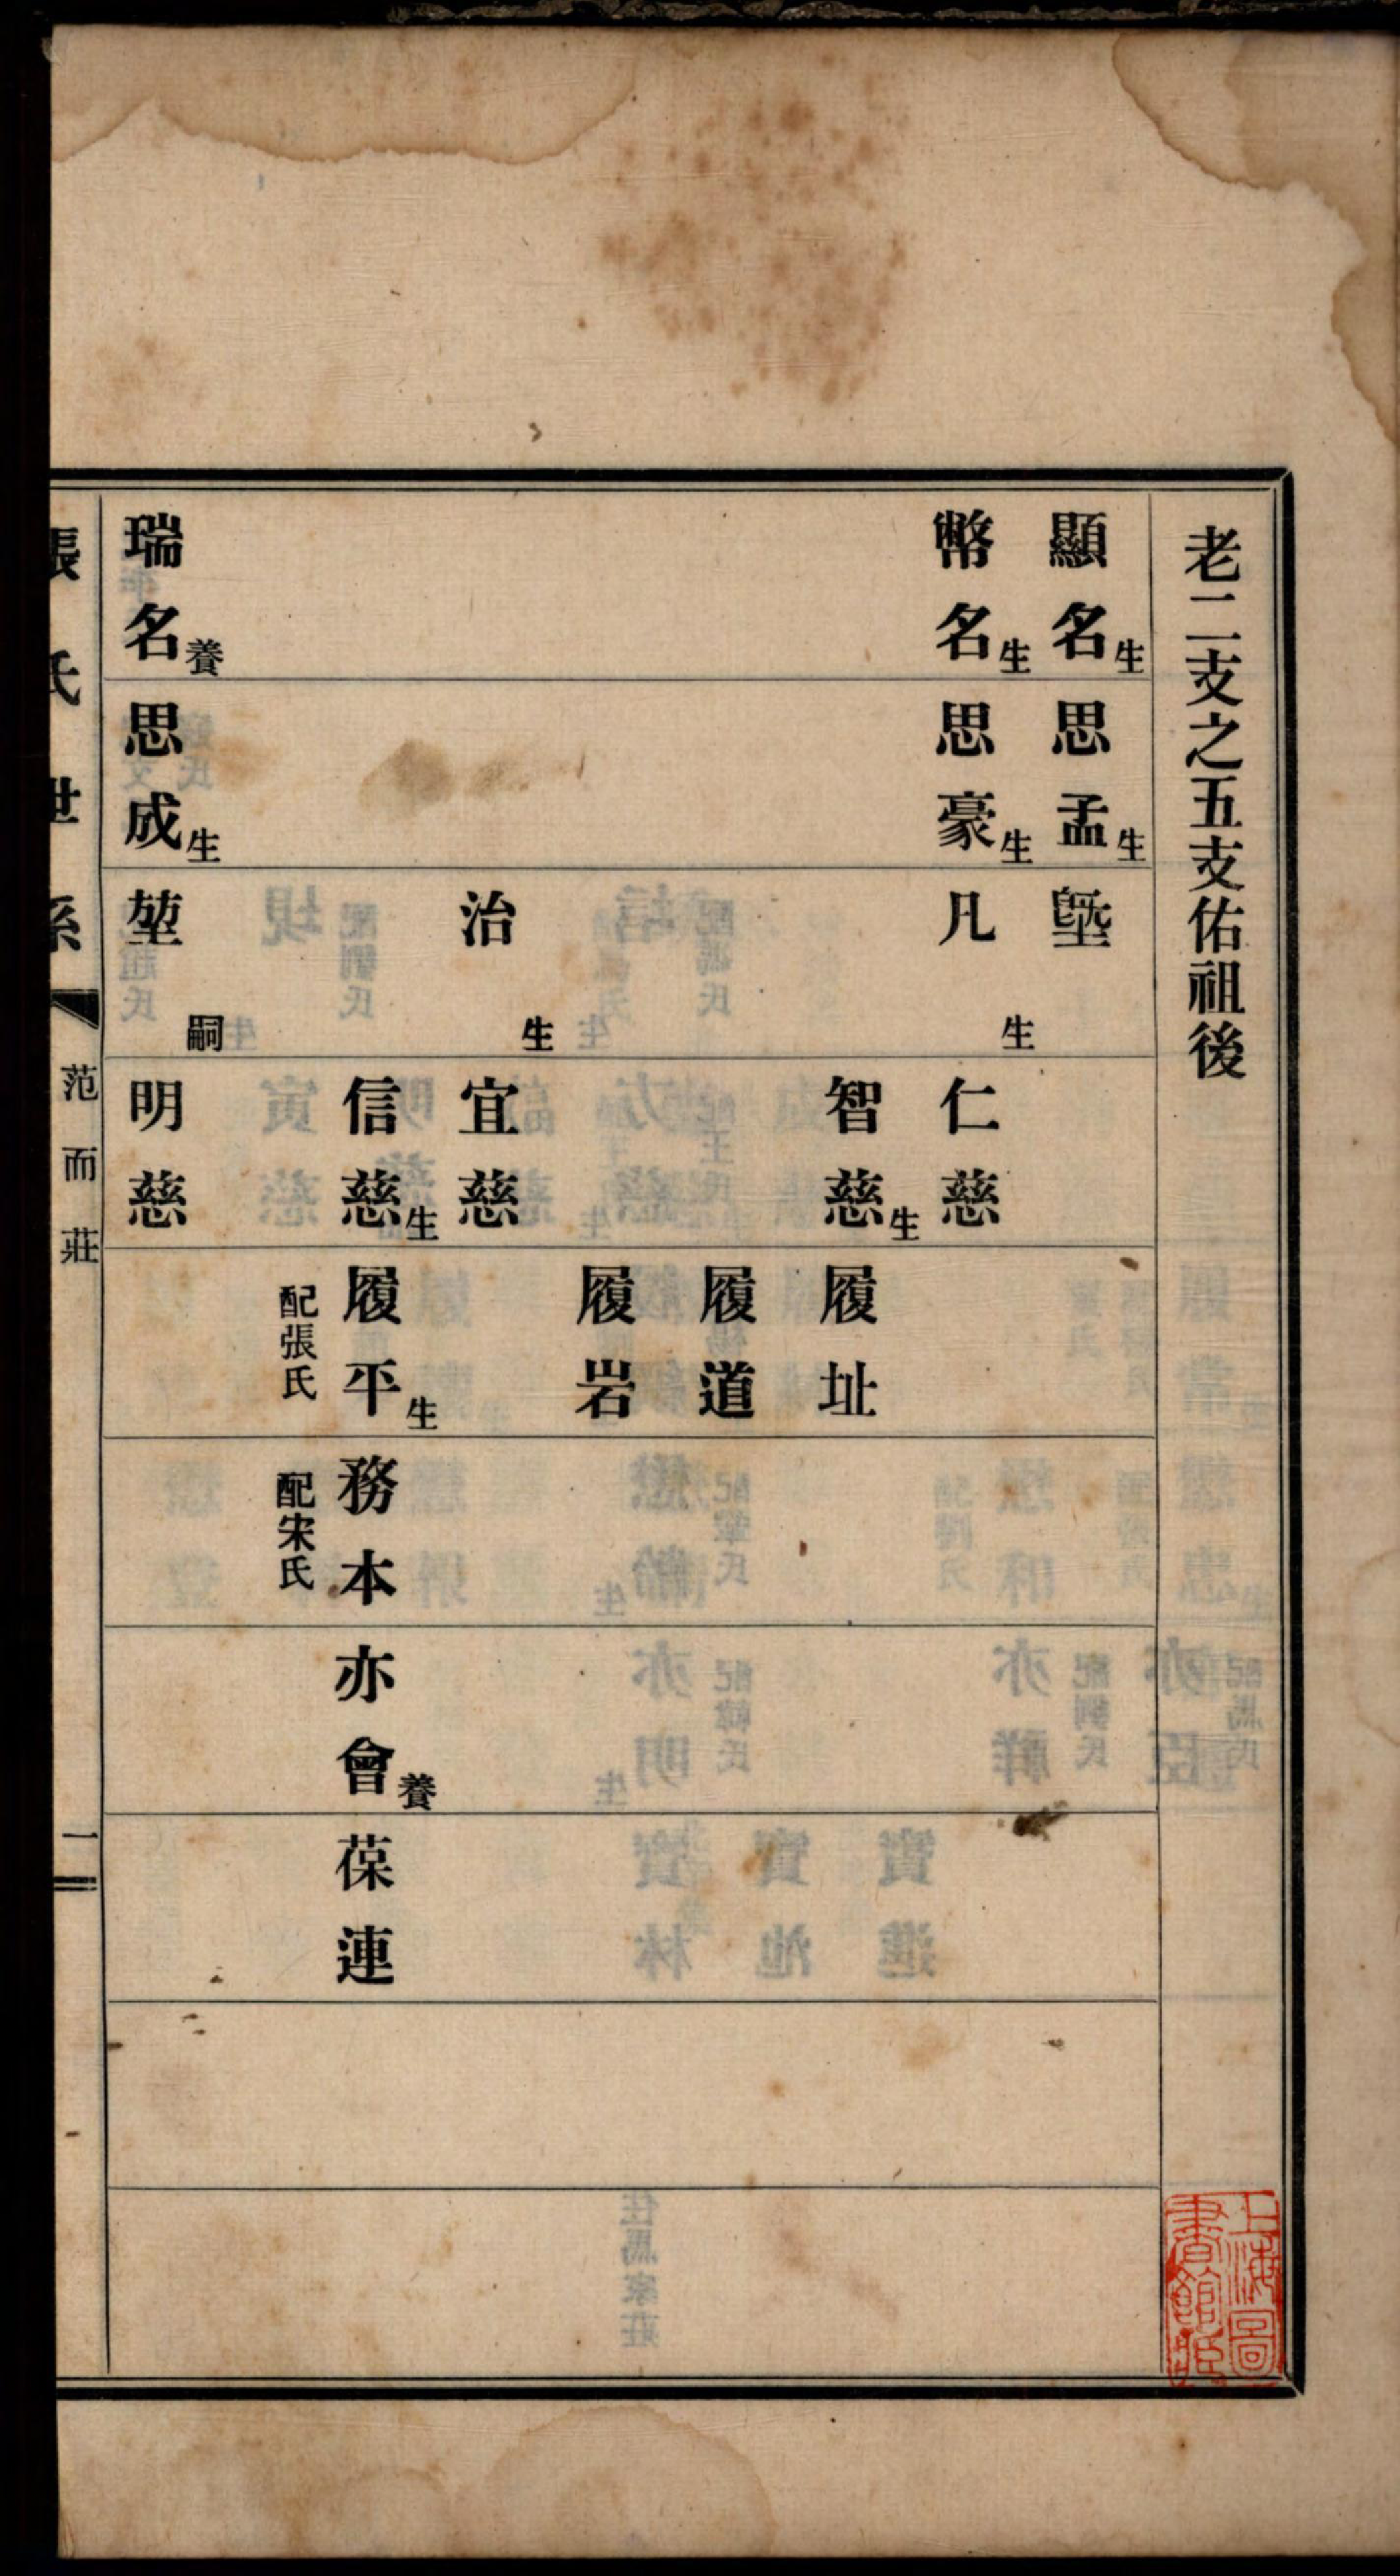 老二支之五支佑祖後
顯名生
幣名生
瑞名養
思孟生
思豪生
思成生
塈
凡生
治生
堃嗣
仁慈
智慈生
宜慈
信慈生
明慈
履址
履道
履岩
履平生
配張氏
務本
配宋氏
亦會養
葆連
張氏世系
范而莊
一
上海圖書館藏